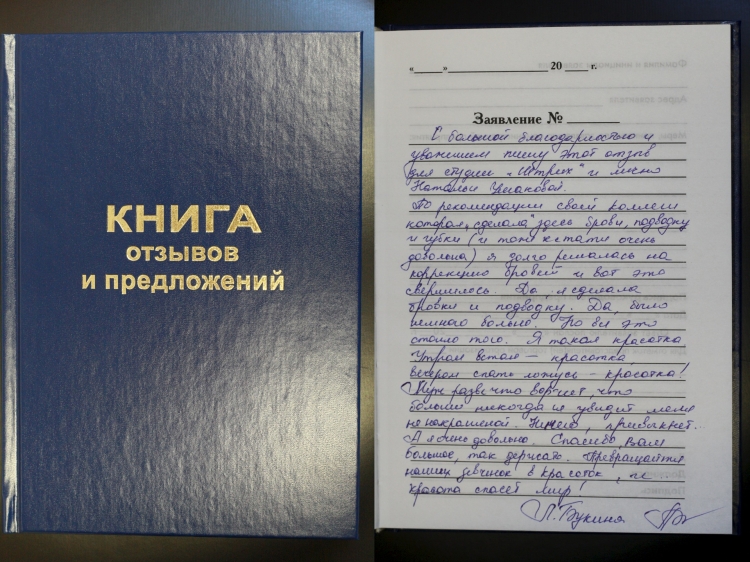 КНИГА
ОТЗЫВОВ
И ПРЕДЛОЖЕНИЙ
« » 20 г.
Заявление №
С большой благодарностью и
уважением пишу этот отзыв
для студии „Штрих" и лично
Натальи Ушаковой.
По рекомендации своей коллеги
которая „сделала" здесь брови, подводку
и губки (и тоже кстати очень
довольна) я долго решалась на
коррекцию бровей и вот это
свершилось. Да, я сделала
бровки и подводку. Да, было
немного больно. Но всё это
стоило того. Я такая красотка
Утром встаю — красотка,
вечером спать ложусь — красотка!
Муж разве что ворчит, что
больше никогда не увидит меня
не накрашеной. Ничего, привыкнет.
А я очень довольна. Спасибо Вам
большое, так держать. Превращайте
наших девчонок в красоток,
красота спасёт мир!
Л. Букина